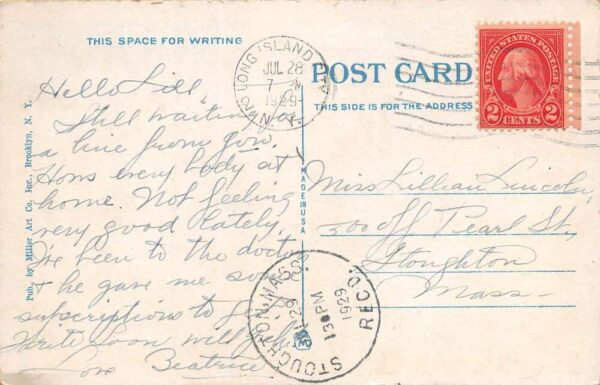 THIS SPACE FOR WRITING
POST CARD
THIS SIDE IS FOR THE ADDRESS
LONG ISLAND
JUL 28
7
1929
N.Y.
UNITED STATES POSTAGE
2 CENTS 2
Hello Lill,
Still waiting for
a line from you.
Hows every body at
home. Not feeling
very good lately.
I've been to the doctor
& he gave me some
subscriptions to
Write soon will
Love Beatrice
Miss Lillian Lincoln,
500 off Pearl St,
Stoughton
Mass-
MADE IN USA
Pub. by Miller Art Co., Inc., Brooklyn, N. Y.
STOUGHTON, MASS.
29
130PM
1929
REC'D.